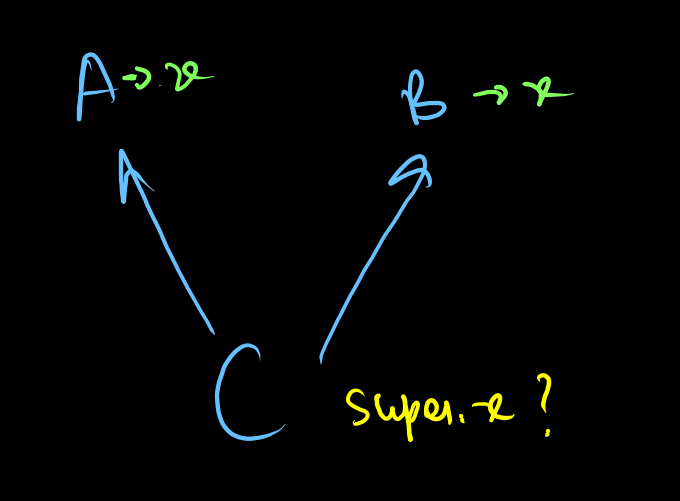 A → x
B → x
C super.x ?